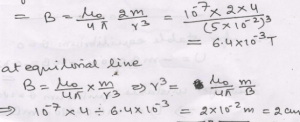 = B = μ₀/4π 2m/r³ = 10⁻⁷ × 2 × 4/(5×10⁻²)³
= 6.4×10⁻³T
at equitorial line
B = μ₀/4π × m/r³ ⇒ r³ = μ₀/4π m/B
⇒ 10⁻⁷ × 4 ÷ 6.4×10⁻³ = 2×10⁻²m = 2cm